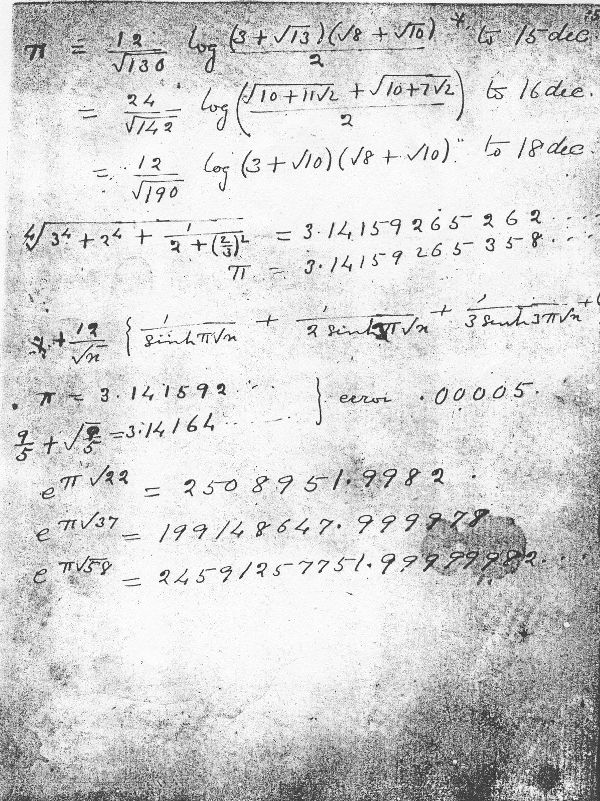 75
π = 12/√130 log (3 + √13)(√8 + √10)/2 *. to 15 dec.
= 24/√142 log (√(10 + 11√2) + √(10 + 7√2)/2) to 16 dec.
= 12/√190 log (3 + √10)(√8 + √10) " to 18 dec.
∜(3⁴ + 2⁴ + 1/(2 + (2/3)²)) = 3.14159265262 ....
π = 3.14159265358. ...
+ 12/√n { 1/sinh π√n + 1/2 sinh 2π√n + 1/3 sinh 3π√n + (
π = 3.141592 ... } error .00005.
9/5 + √(9/5) = 3.14164 ...
e^π√22 = 2508951.9982 .
e^π√37 = 199148647.999978
e^π√58 = 24591257751.99999982. . .